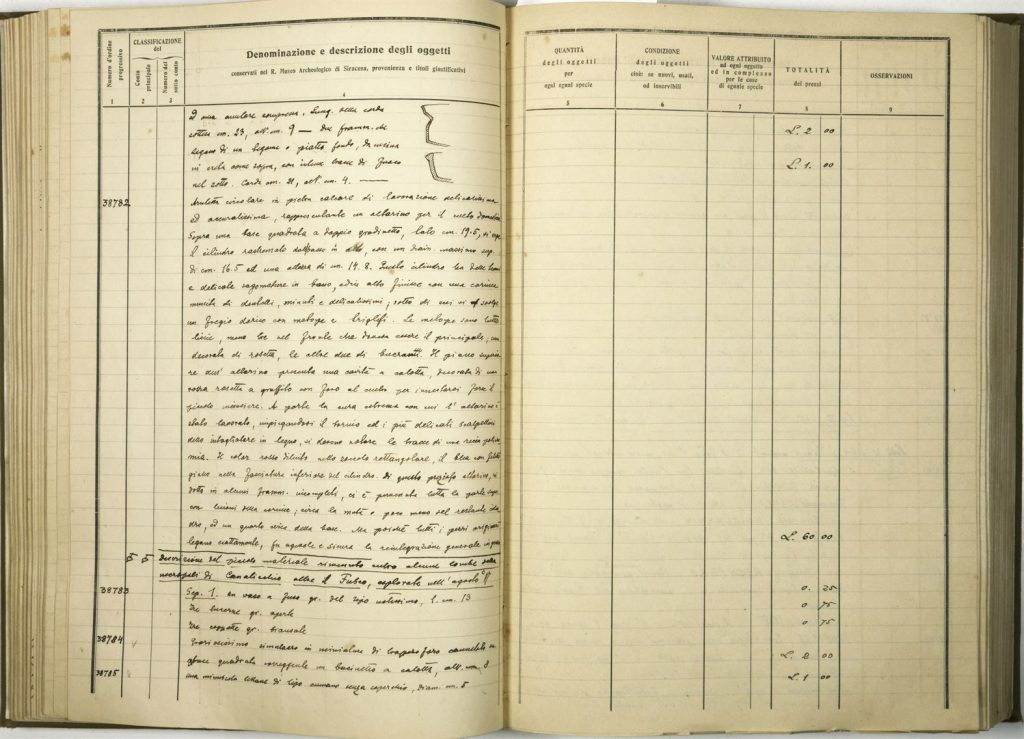 Numero d'ordine progressivo
CLASSIFICAZIONE del
Conto principale
Numero del sotto conto
Denominazione e descrizione degli oggetti
conservati nel R. Museo Archeologico di Siracusa, provenienza e titoli giustificativi
1 2 3 4
cm. 23, alt. cm. 9 — due framm. che
legano di un tegame o piatto fondo, da cucina
in creta come sopra, con tracce di fuoco
nel sotto. Corda cm. 21, alt. cm. 4. —
38782 Aruletta circolare in pietra calcare di lavorazione delicatissima
ed accuratissima, rappresentante un altarino per il culto domestico
Sopra una base quadrata a doppio gradinetto, lato cm. 19.5, si erge
il cilindro rastremato dal basso in alto, con un diam. massimo sup.
di cm. 16.5 ed una altezza di cm. 14.8. Questo cilindro ha delle
e delicate sagomature in basso, ed in alto finisce con una cornice
munita di dentelli, minuti e delicatissimi; sotto di essi si svolge
un fregio dorico con metope e triglifi. Le metope sono tutte
liscie, meno tre nel fronte che doveva essere il principale, una
decorata di rosetta, le altre due di bucranii. Il piano superio
re dell'altarino presenta una cavità a calotta, decorata di una
rosetta a graffito con foro al centro per innestarvi forse il
piccolo incensiere. A parte la cura estrema con cui l'altarino è
stato lavorato, impiegandosi il tornio ed i più delicati scalpellini
dello intagliatore in legno, si devono notare le tracce di una ricca policro
mia. Il color rosso diluito nello zoccolo rettangolare, il bleu con filetti
gialli nella fasciatura inferiore del cilindro. Di questo prezioso altarino, ri
dotto in alcuni framm. incompleti, ci è pervenuta tutta la parte sup.
con lesioni della cornice; circa la metà o poco meno del restante cilin
dro, ed un quarto circa della base. Ma poichè tutti i pezzi originali
legano esattamente, fu agevole e sicura la reintegrazione generale in gesso
5 5 Descrizione del piccolo materiale rinvenuto entro alcune tombe della
necropoli di Canalicchio, oltre il Fusco, esplorate nell'agosto
38783 Sep. 1. un vaso a fuso gr. del tipo notissimo, l. cm. 13
tre lucerne gr. aperte
tre coppette gr. biansate
38784 Graziosissimo simulacro in miniatura di
quadrata sorreggente un bacinetto a calotta, alt. cm. 8
38785 una minuscola lekane di tipo cumano senza coperchio, diam. cm. 5
QUANTITÀ degli oggetti per ogni egual specie
CONDIZIONE degli oggetti cioè: se nuovi, usati, od inservibili
VALORE ATTRIBUITO ad ogni oggetto ed in complesso per le cose di eguale specie
TOTALITÀ dei prezzi
OSSERVAZIONI
5 6 7 8 9
L. 2 00
L. 1. 00
L. 60 00
0. 25
0 75
0 75
L. 2 00
L. 1 00